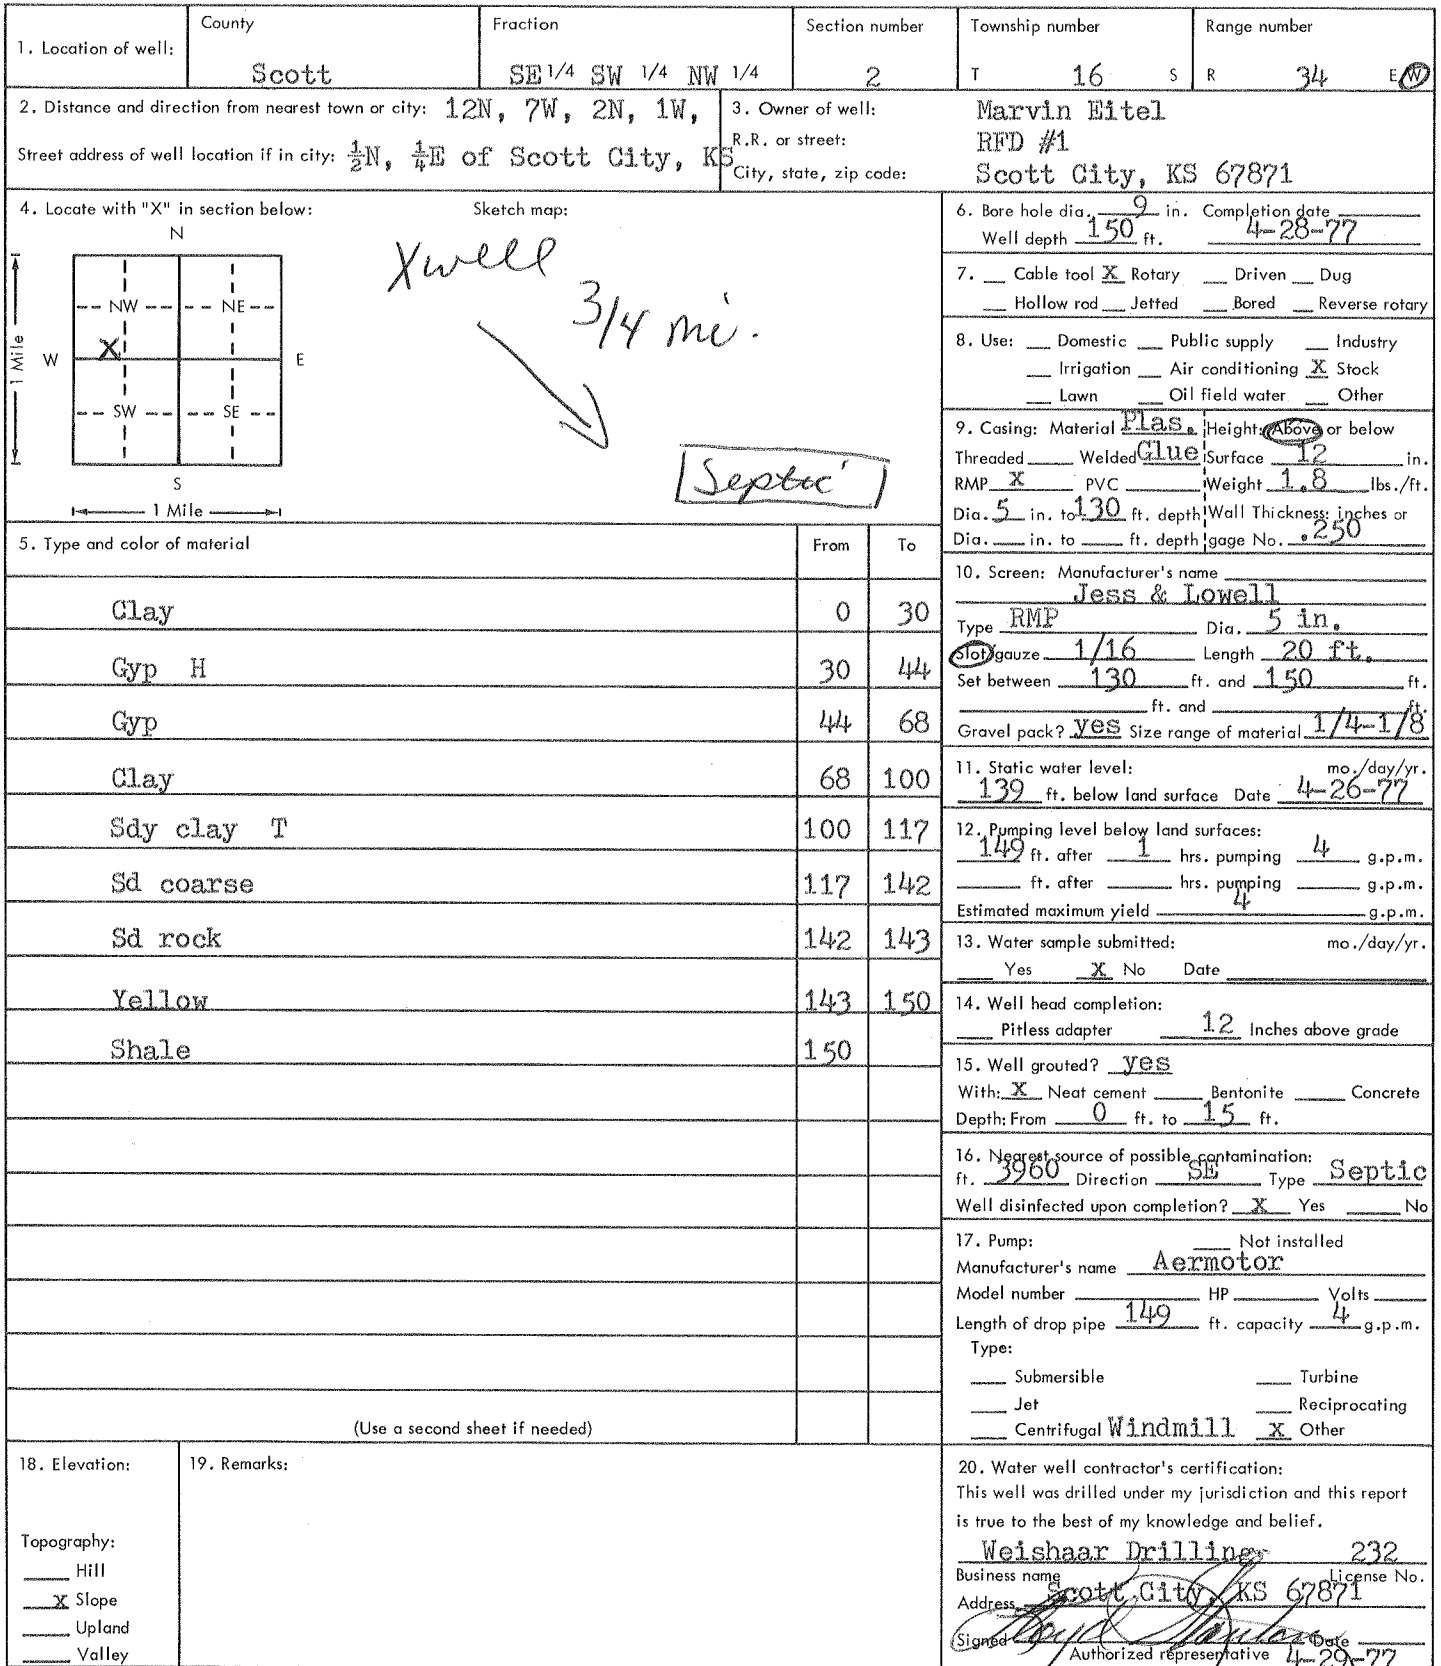 1. Location of well: County Scott Fraction SE 1/4 SW 1/4 NW 1/4 Section number 2 Township number T 16 S Range number R 34 E W
2. Distance and direction from nearest town or city: 12N, 7W, 2N, 1W,
Street address of well location if in city: ½N, ¼E of Scott City, KS
3. Owner of well: Marvin Eitel
R.R. or street: RFD #1
City, state, zip code: Scott City, KS 67871
4. Locate with "X" in section below: Sketch map:
N
NW NE
X
W E
SW SE
S
1 Mile
1 Mile
X well
3/4 mi.
Septic
5. Type and color of material From To
Clay 0 30
Gyp H 30 44
Gyp 44 68
Clay 68 100
Sdy clay T 100 117
Sd coarse 117 142
Sd rock 142 143
Yellow 143 150
Shale 150
(Use a second sheet if needed)
6. Bore hole dia. 9 in. Completion date
Well depth 150 ft. 4-28-77
7. Cable tool X Rotary Driven Dug
Hollow rod Jetted Bored Reverse rotary
8. Use: Domestic Public supply Industry
Irrigation Air conditioning X Stock
Lawn Oil field water Other
9. Casing: Material Plas. Height: Above or below
Threaded Welded Glue Surface 12 in.
RMP X PVC Weight 1.8 lbs./ft.
Dia. 5 in. to 130 ft. depth Wall Thickness: inches or
Dia. in. to ft. depth gage No. .250
10. Screen: Manufacturer's name
Jess & Lowell
Type RMP Dia. 5 in.
Slot/gauze 1/16 Length 20 ft.
Set between 130 ft. and 150 ft.
ft. and ft.
Gravel pack? yes Size range of material 1/4-1/8
11. Static water level: mo./day/yr.
139 ft. below land surface Date 4-26-77
12. Pumping level below land surfaces:
149 ft. after 1 hrs. pumping 4 g.p.m.
ft. after hrs. pumping g.p.m.
Estimated maximum yield 4 g.p.m.
13. Water sample submitted: mo./day/yr.
Yes X No Date
14. Well head completion:
Pitless adapter 12 Inches above grade
15. Well grouted? yes
With: X Neat cement Bentonite Concrete
Depth: From 0 ft. to 15 ft.
16. Nearest source of possible contamination:
ft. 3960 Direction SE Type Septic
Well disinfected upon completion? X Yes No
17. Pump: Not installed
Manufacturer's name Aermotor
Model number HP Volts
Length of drop pipe 149 ft. capacity 4 g.p.m.
Type:
Submersible Turbine
Jet Reciprocating
Centrifugal Windmill X Other
18. Elevation:
Topography:
Hill
X Slope
Upland
Valley
19. Remarks:
20. Water well contractor's certification:
This well was drilled under my jurisdiction and this report
is true to the best of my knowledge and belief.
Weishaar Drilling 232
Business name License No.
Address Scott City, KS 67871
Signed Date
Authorized representative 4-29-77